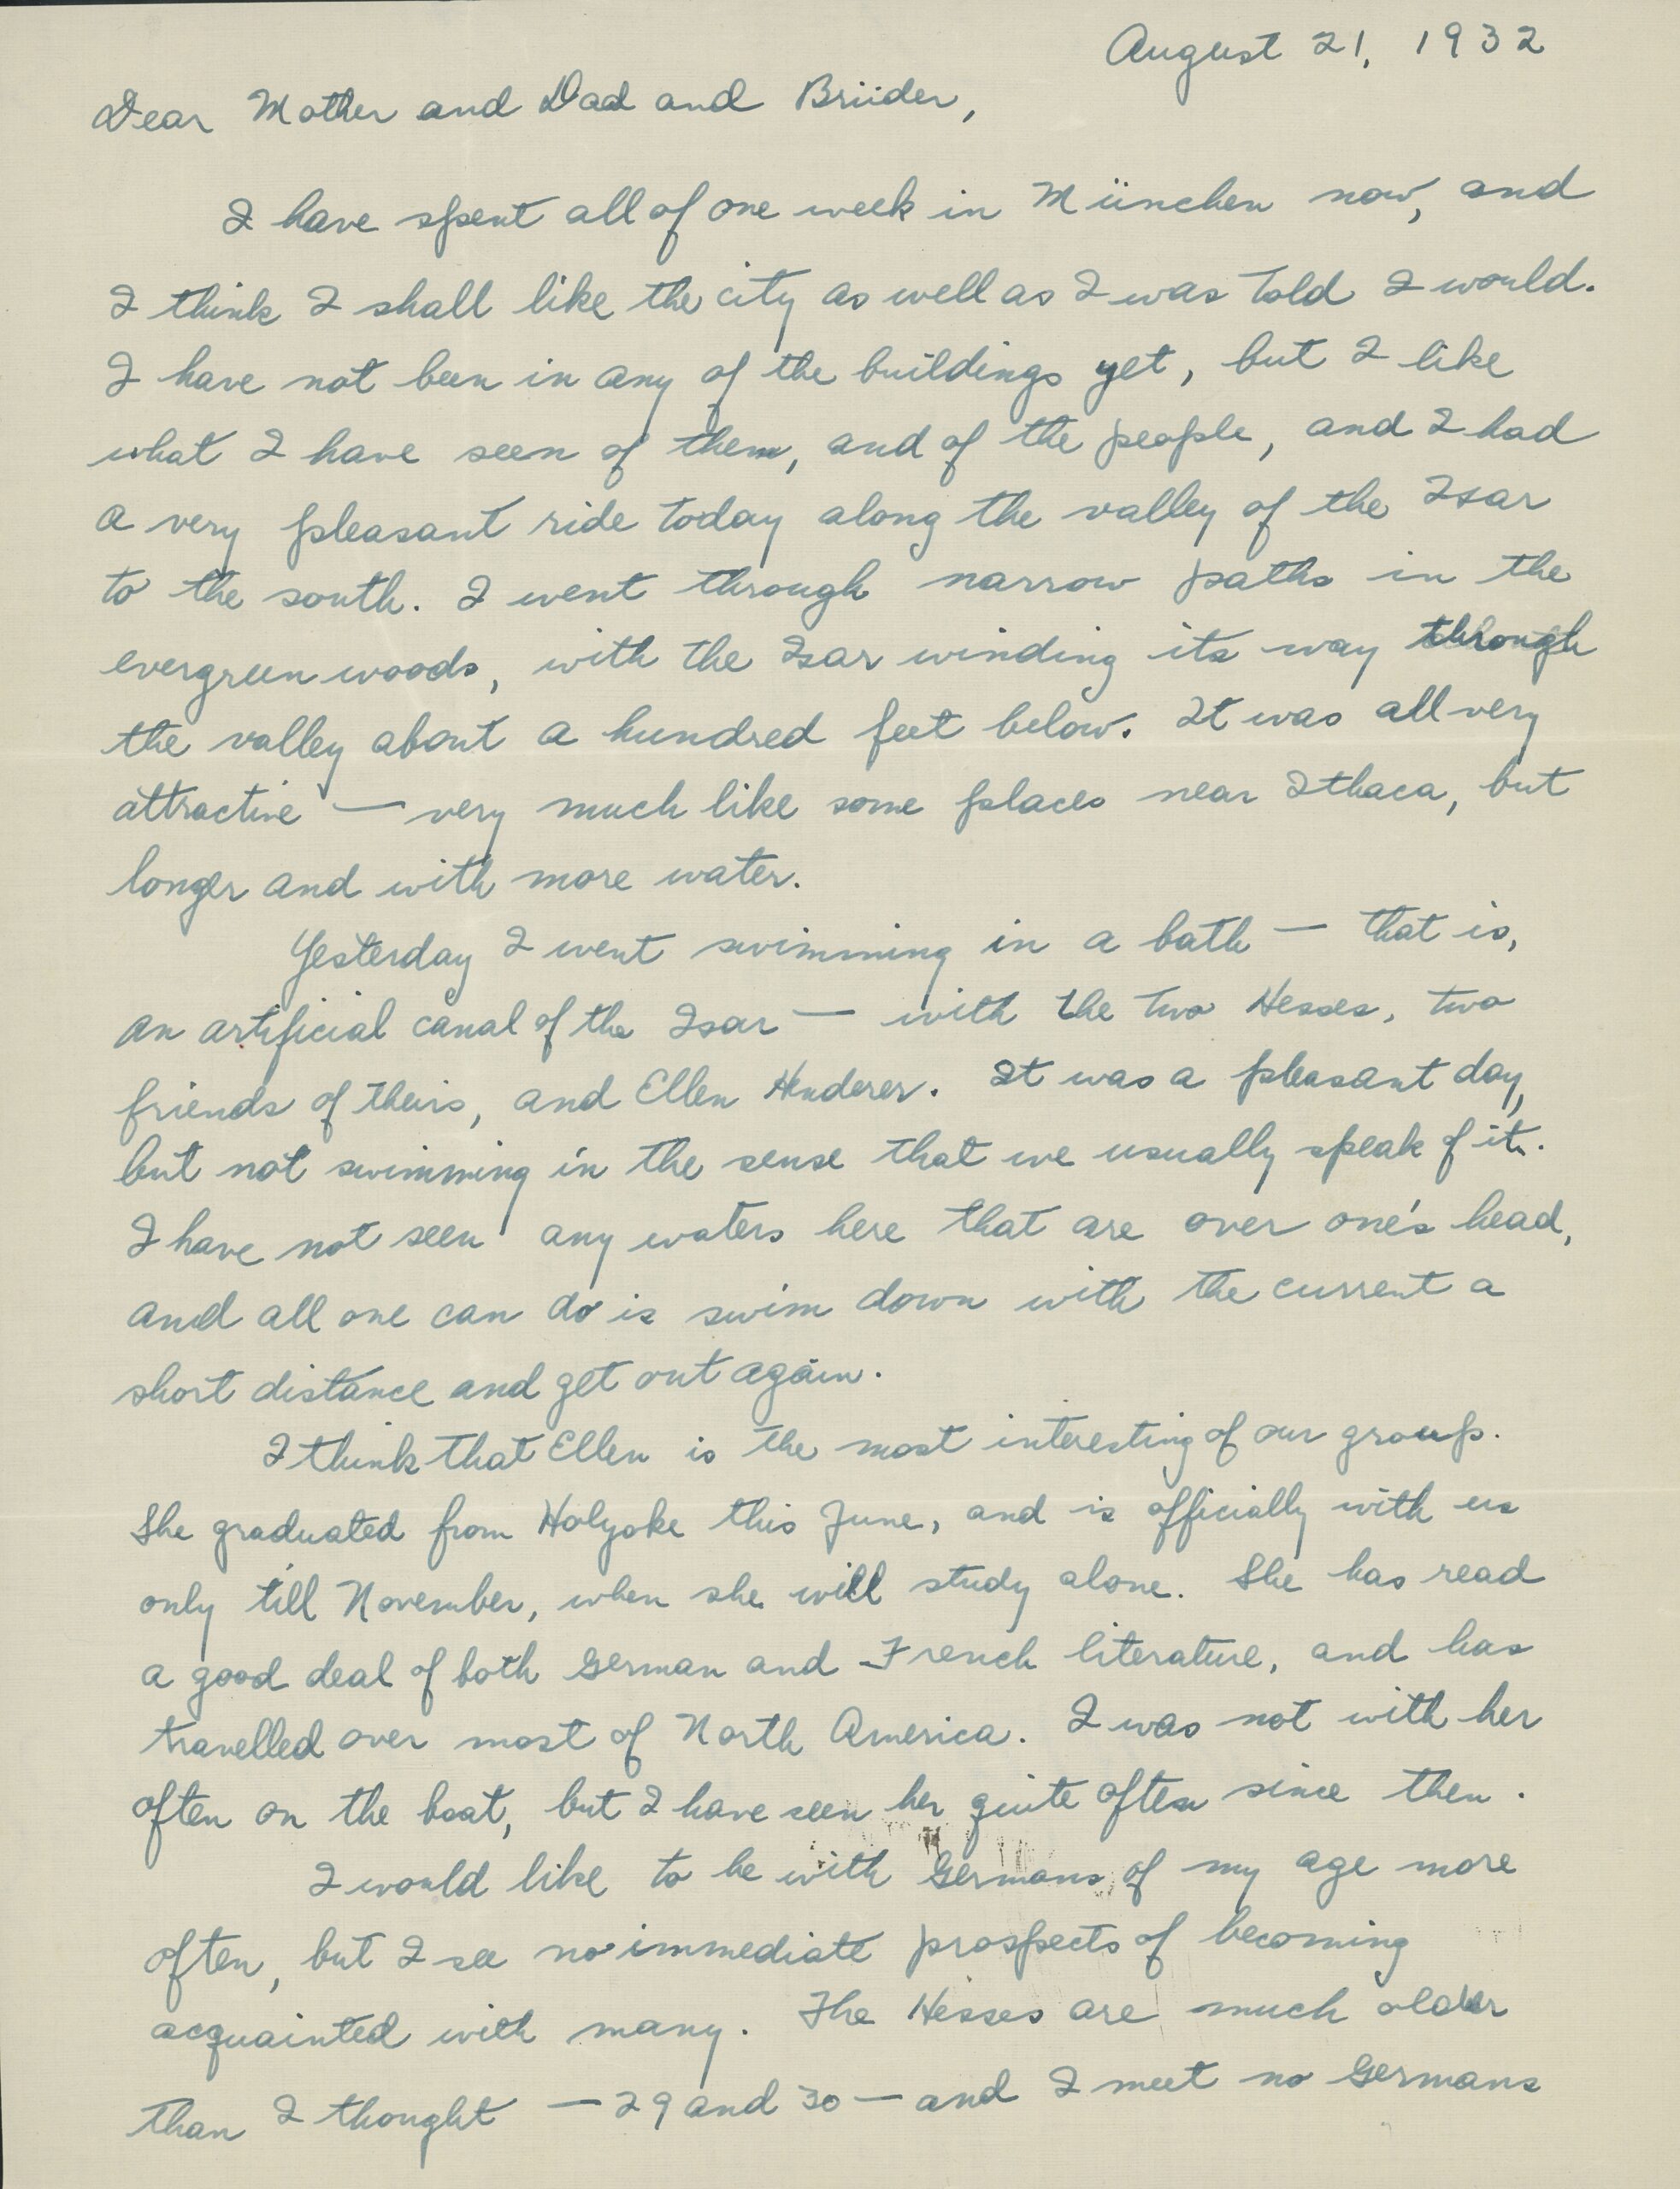 August 21, 1932
Dear Mother and Dad and Brüder,
I have spent all of one week in München now, and
I think I shall like the city as well as I was told I would.
I have not been in any of the buildings yet, but I like
what I have seen of them, and of the people, and I had
a very pleasant ride today along the valley of the Isar
to the south. I went through narrow paths in the
evergreen woods, with the Isar winding its way through
the valley about a hundred feet below. It was all very
attractive — very much like some places near Ithaca, but
longer and with more water.
Yesterday I went swimming in a bath — that is,
an artificial canal of the Isar — with the two Hesses, two
friends of theirs, and Ellen Hinderer. It was a pleasant day,
but not swimming in the sense that we usually speak of it.
I have not seen any waters here that are over one's head,
and all one can do is swim down with the current a
short distance and get out again.
I think that Ellen is the most interesting of our group.
She graduated from Holyoke this June, and is officially with us
only till November, when she will study alone. She has read
a good deal of both German and French literature, and has
travelled over most of North America. I was not with her
often on the boat, but I have seen her quite often since then.
I would like to be with Germans of my age more
often, but I see no immediate prospects of becoming
acquainted with many. The Hesses are much older
than I thought — 29 and 30 — and I meet no Germans